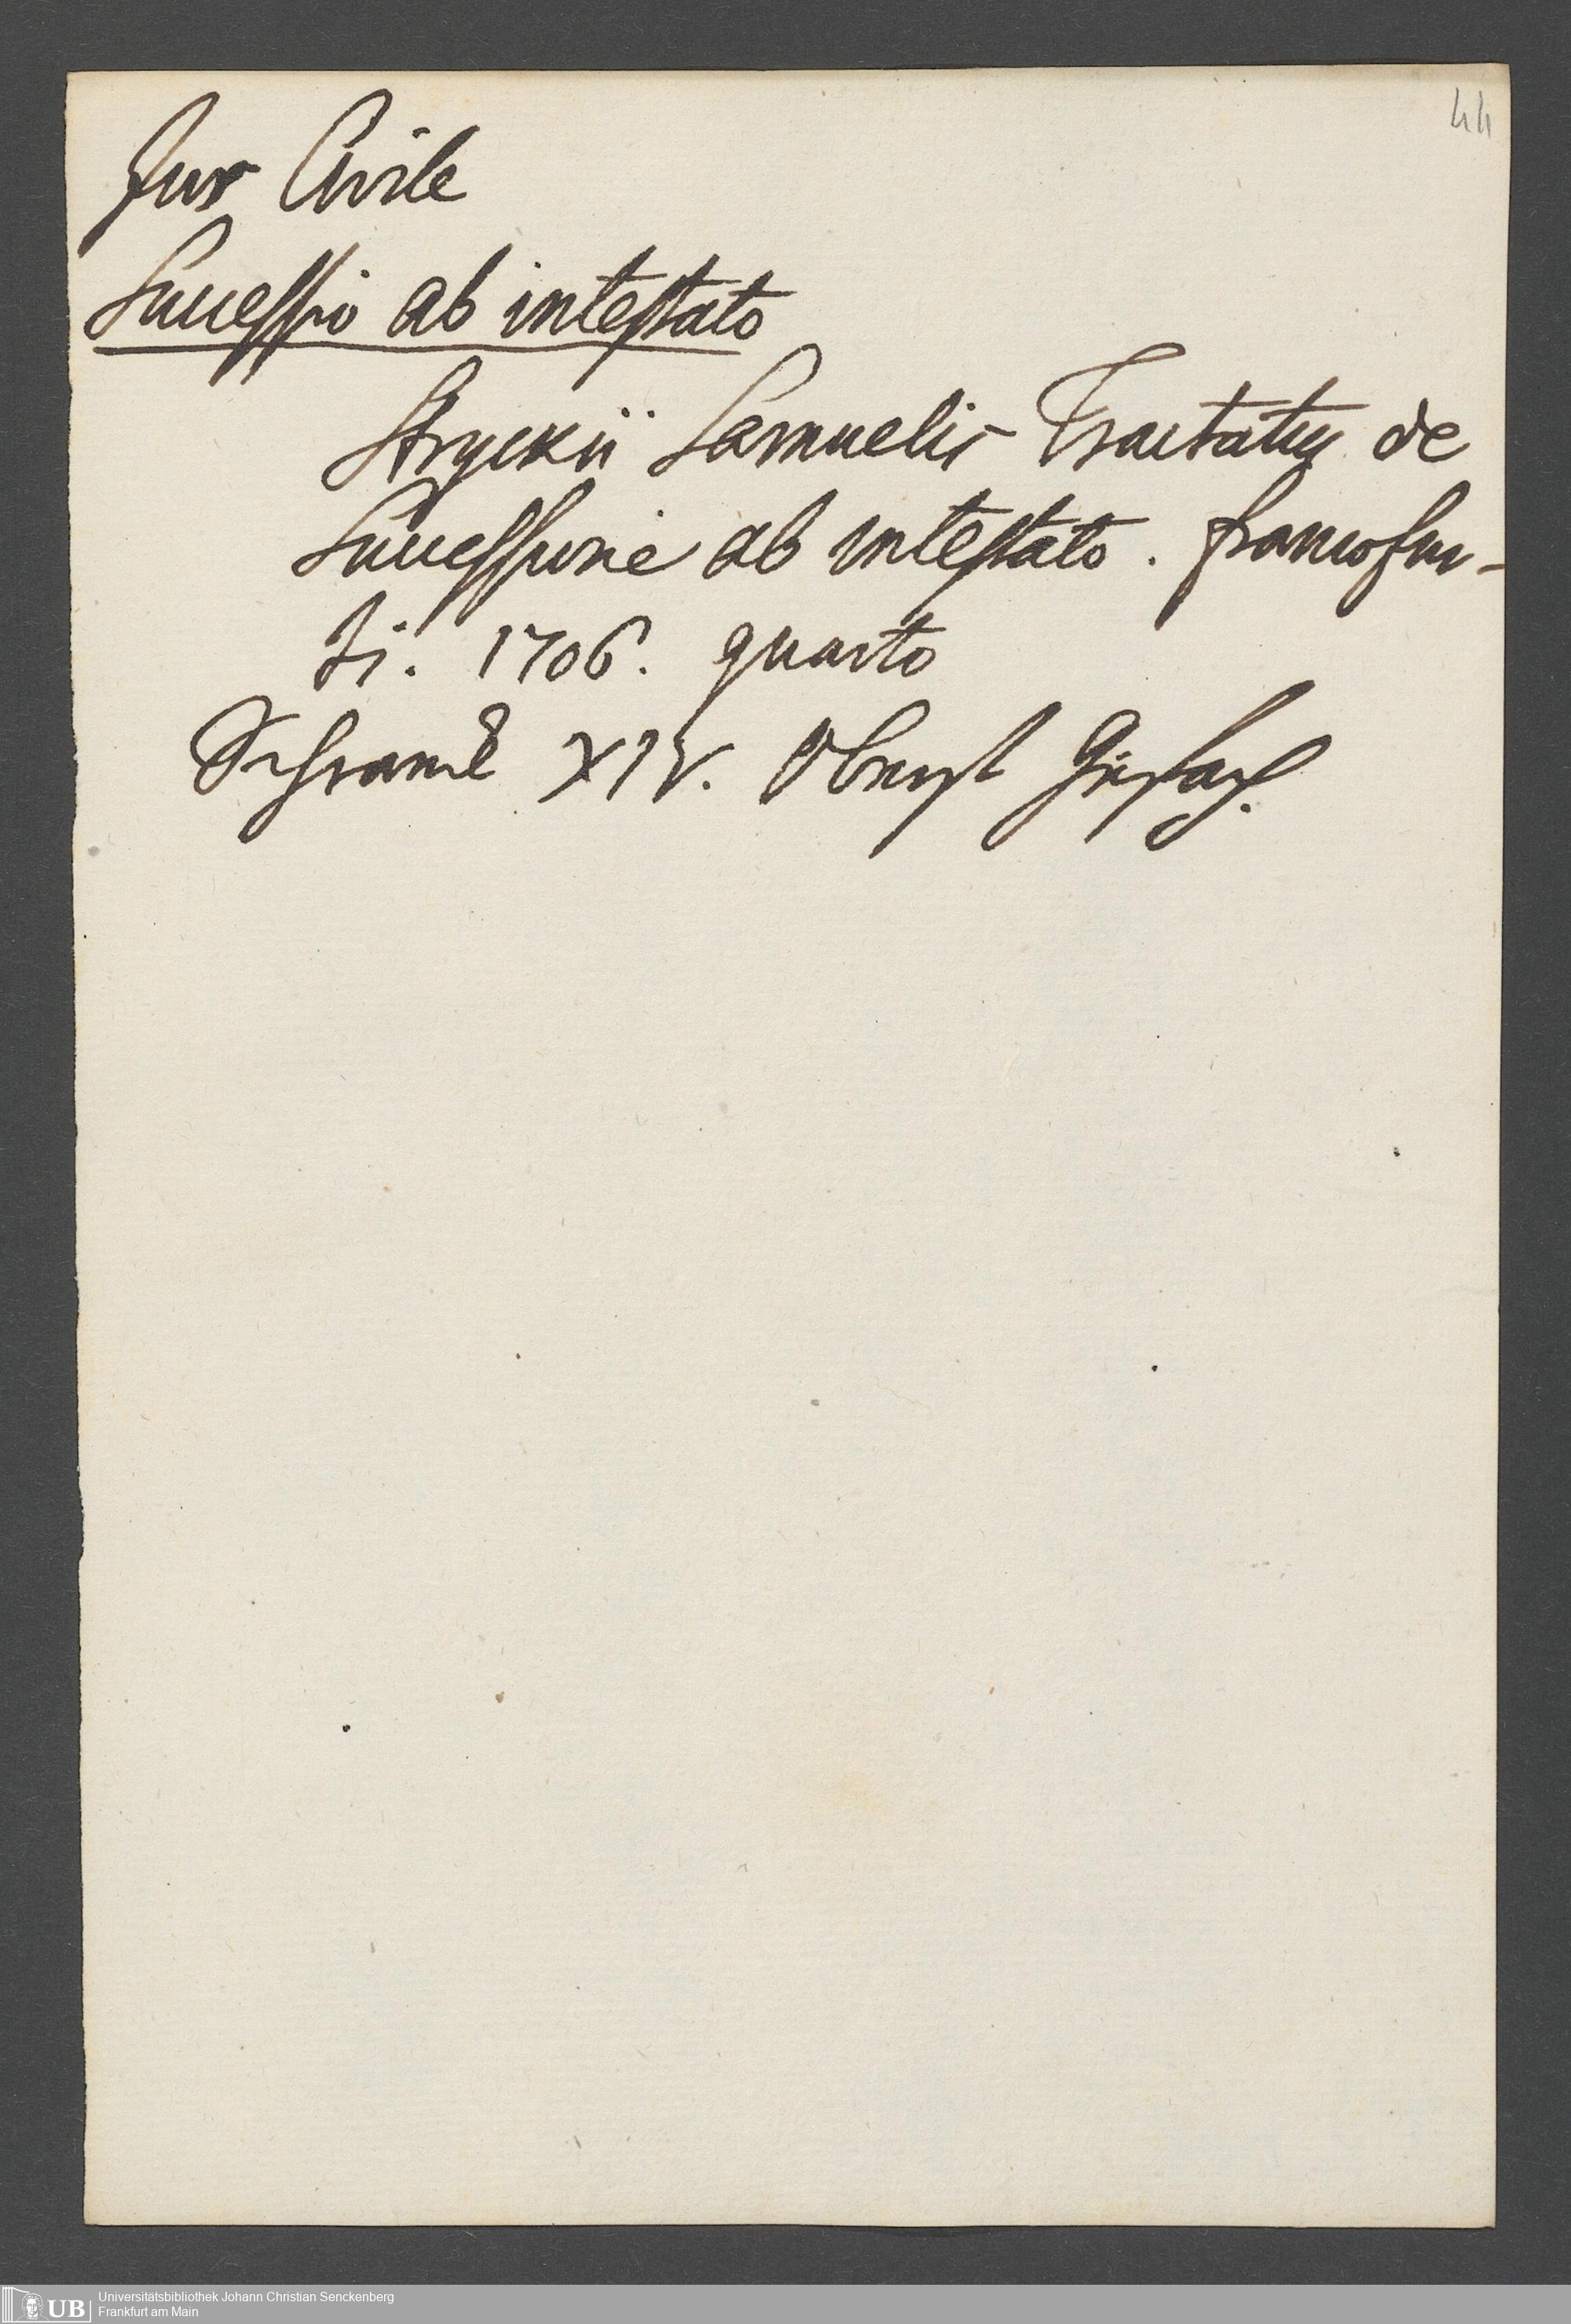 44
Jus Civile
Successio ab intestato
Stryckii Samuelis Tractatus de
Successione ab intestato. Francofur-
ti. 1706. quarto
Schranck XIV. Oberst
Universitätsbibliothek Johann Christian Senckenberg
UB Frankfurt am Main